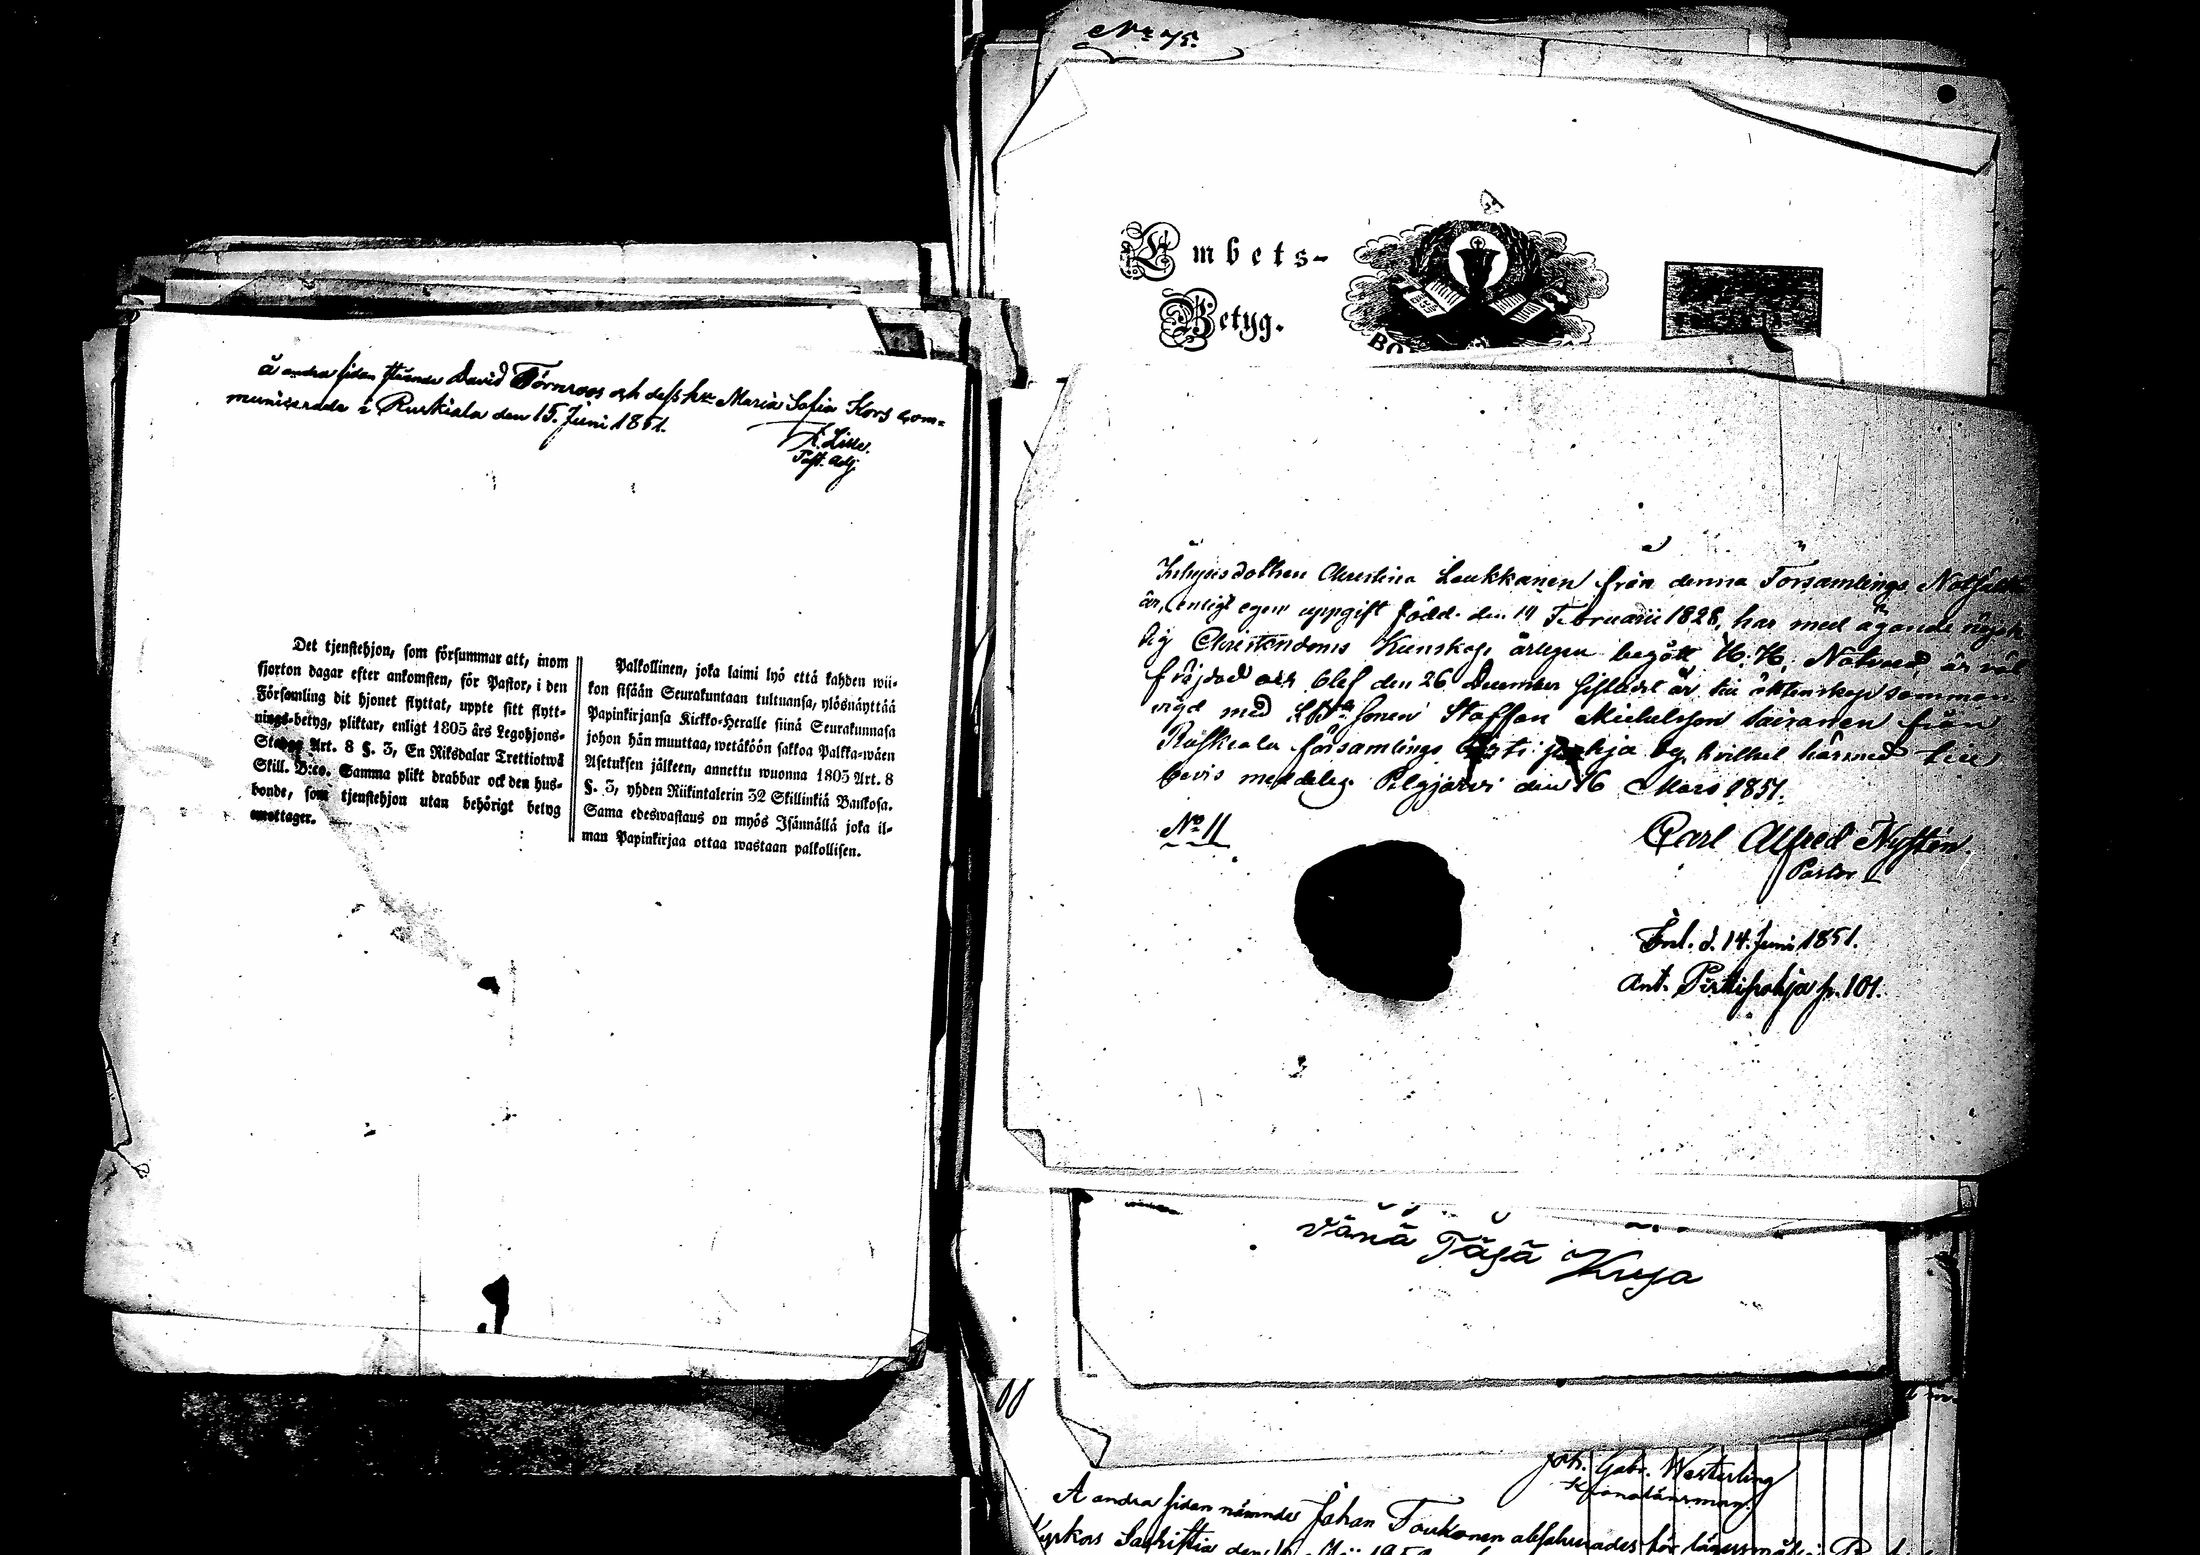 å andra sidan stående David Törnroos och dess h:u Maria Sofia Kors com-
municerade i Ruskiala den 15. Juni 1851.
Past. Adj
Det tjenstehjon, som försummar att, inom
fjorton dagar efter ankomsten, för Pastor, i den
Församling dit hjonet flyttat, uppte sitt flytt-
nings-betyg, pliktar, enligt 1805 års Legohjons-
Stadga Art. 8 §. 3, En Riksdalar Trettiotwå
Skill. B:co. Samma plikt drabbar ock den hus-
bonde, som tjenstehjon utan behörigt betyg
emottager.
Palkollinen, joka laimi lyö että kahden wii-
kon sisään Seurakuntaan tultuansa, ylösnäyttää
Papinkirjansa Kirkko-Heralle siinä Seurakunnasa
johon hän muuttaa, wetäköön sakkoa Palkka-wäen
Asetuksen jälkeen, annettu wuonna 1805 Art. 8
§. 3, yhden Riikintalerin 32 Skillinkiä Bankosa.
Sama edeswastaus on myös Isännällä joka il-
man Papinkirjaa ottaa wastaan palkollisen.
No 75.
Embets-
Betyg.
BO
Inhysesdottren Christina Laukkanen från denna Församlings
är, enligt egen uppgift född den 14 Februarii 1828, har med ägande
lig Christendoms Kunskap ärligen begått H. H. Nattvard, är väl
fräjdad och blef den 26 December sistledet år till äktenskap samman
vigd med sonen Staffan Michelsson Sairanen från
Ruskeala församlings by, hvilket härmed till
bevis meddelas. Pelgjärvi den 16 Mars 1851.
No 11
Carl Alfred Nystén
Pastor
Inl. d. 14. Juni 1851.
Ant. Pirttipohja p. 101.
Joh. Gabr. Westerling
Kronolänsman
A andra sidan nämnde Johan Toukonen
Kyrkos Sakristia den